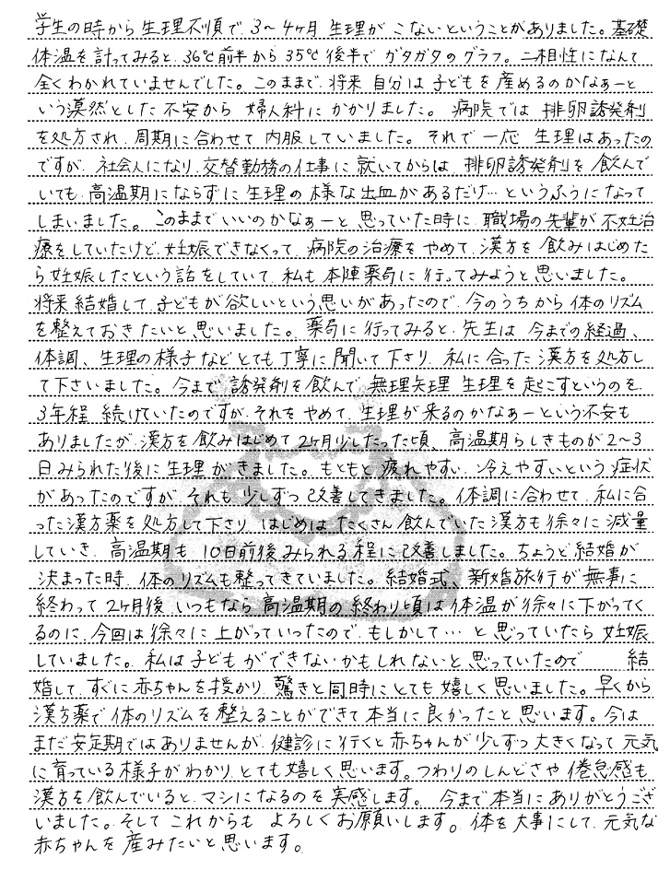 学生の時から生理不順で、3〜4ヶ月生理がこないということがありました。基礎
体温を計ってみると、36℃前半から35℃後半でガタガタのグラフ。二相性になんて
全くわかれていませんでした。このままで、将来自分は子どもを産めるのかなぁーと
いう漠然とした不安から婦人科にかかりました。病院では排卵誘発剤
を処方され、周期に合わせて内服していました。それで一応生理はあったの
ですが、社会人になり、交替勤務の仕事に就いてからは、排卵誘発剤を飲んで
いても、高温期にならずに生理の様な出血があるだけ…というふうになって
しまいました。このままでいいのかなぁーと思っていた時に、職場の先輩が不妊治
療をしていたけど、妊娠できなくって、病院の治療をやめて、漢方を飲みはじめた
ら妊娠したという話をしていて、私も本陣薬局に行ってみようと思いました。
将来結婚して、子どもが欲しいという思いがあったので、今のうちから体のリズム
を整えておきたいと思いました。薬局に行ってみると、先生は今までの経過、
体調、生理の様子などとても丁寧に聞いて下さり、私に合った漢方を処方し
て下さいました。今まで、誘発剤を飲んで、無理矢理生理を起こすというのを
3年程続けていたのですが、それをやめて、生理が来るのかなぁーという不安も
ありましたが、漢方を飲みはじめて2ヶ月少したった頃、高温期らしきものが2〜3
日みられた後に生理がきました。もともと疲れやすい、冷えやすいという症状
があったのですが、それも少しずつ改善してきました。体調に合わせて、私に合
った漢方薬を処方して下さり、はじめはたくさん飲んでいた漢方も徐々に減量
していき、高温期も10日前後みられる程に改善しました。ちょうど結婚が
決まった時、体のリズムも整ってきていました。結婚式、新婚旅行が無事に
終わって2ヶ月後、いつもなら高温期の終わり頃は体温が徐々に下がってく
るのに、今回は徐々に上がっていったので、もしかして…と思っていたら妊娠
していました。私は子どもができないかもしれないと思っていたので 結
婚して、すぐに赤ちゃんを授かり、驚きと同時にとても嬉しく思いました。早くから
漢方薬で体のリズムを整えることができて本当に良かったと思います。今は
まだ安定期ではありませんが、健診に行くと赤ちゃんが少しずつ大きくなって元気
に育っている様子がわかり、とても嬉しく思います。つわりのしんどさや倦怠感も
漢方を飲んでいると、マシになるのを実感します。今まで本当にありがとうござ
いました。そしてこれからもよろしくお願いします。体を大事にして、元気な
赤ちゃんを産みたいと思います。